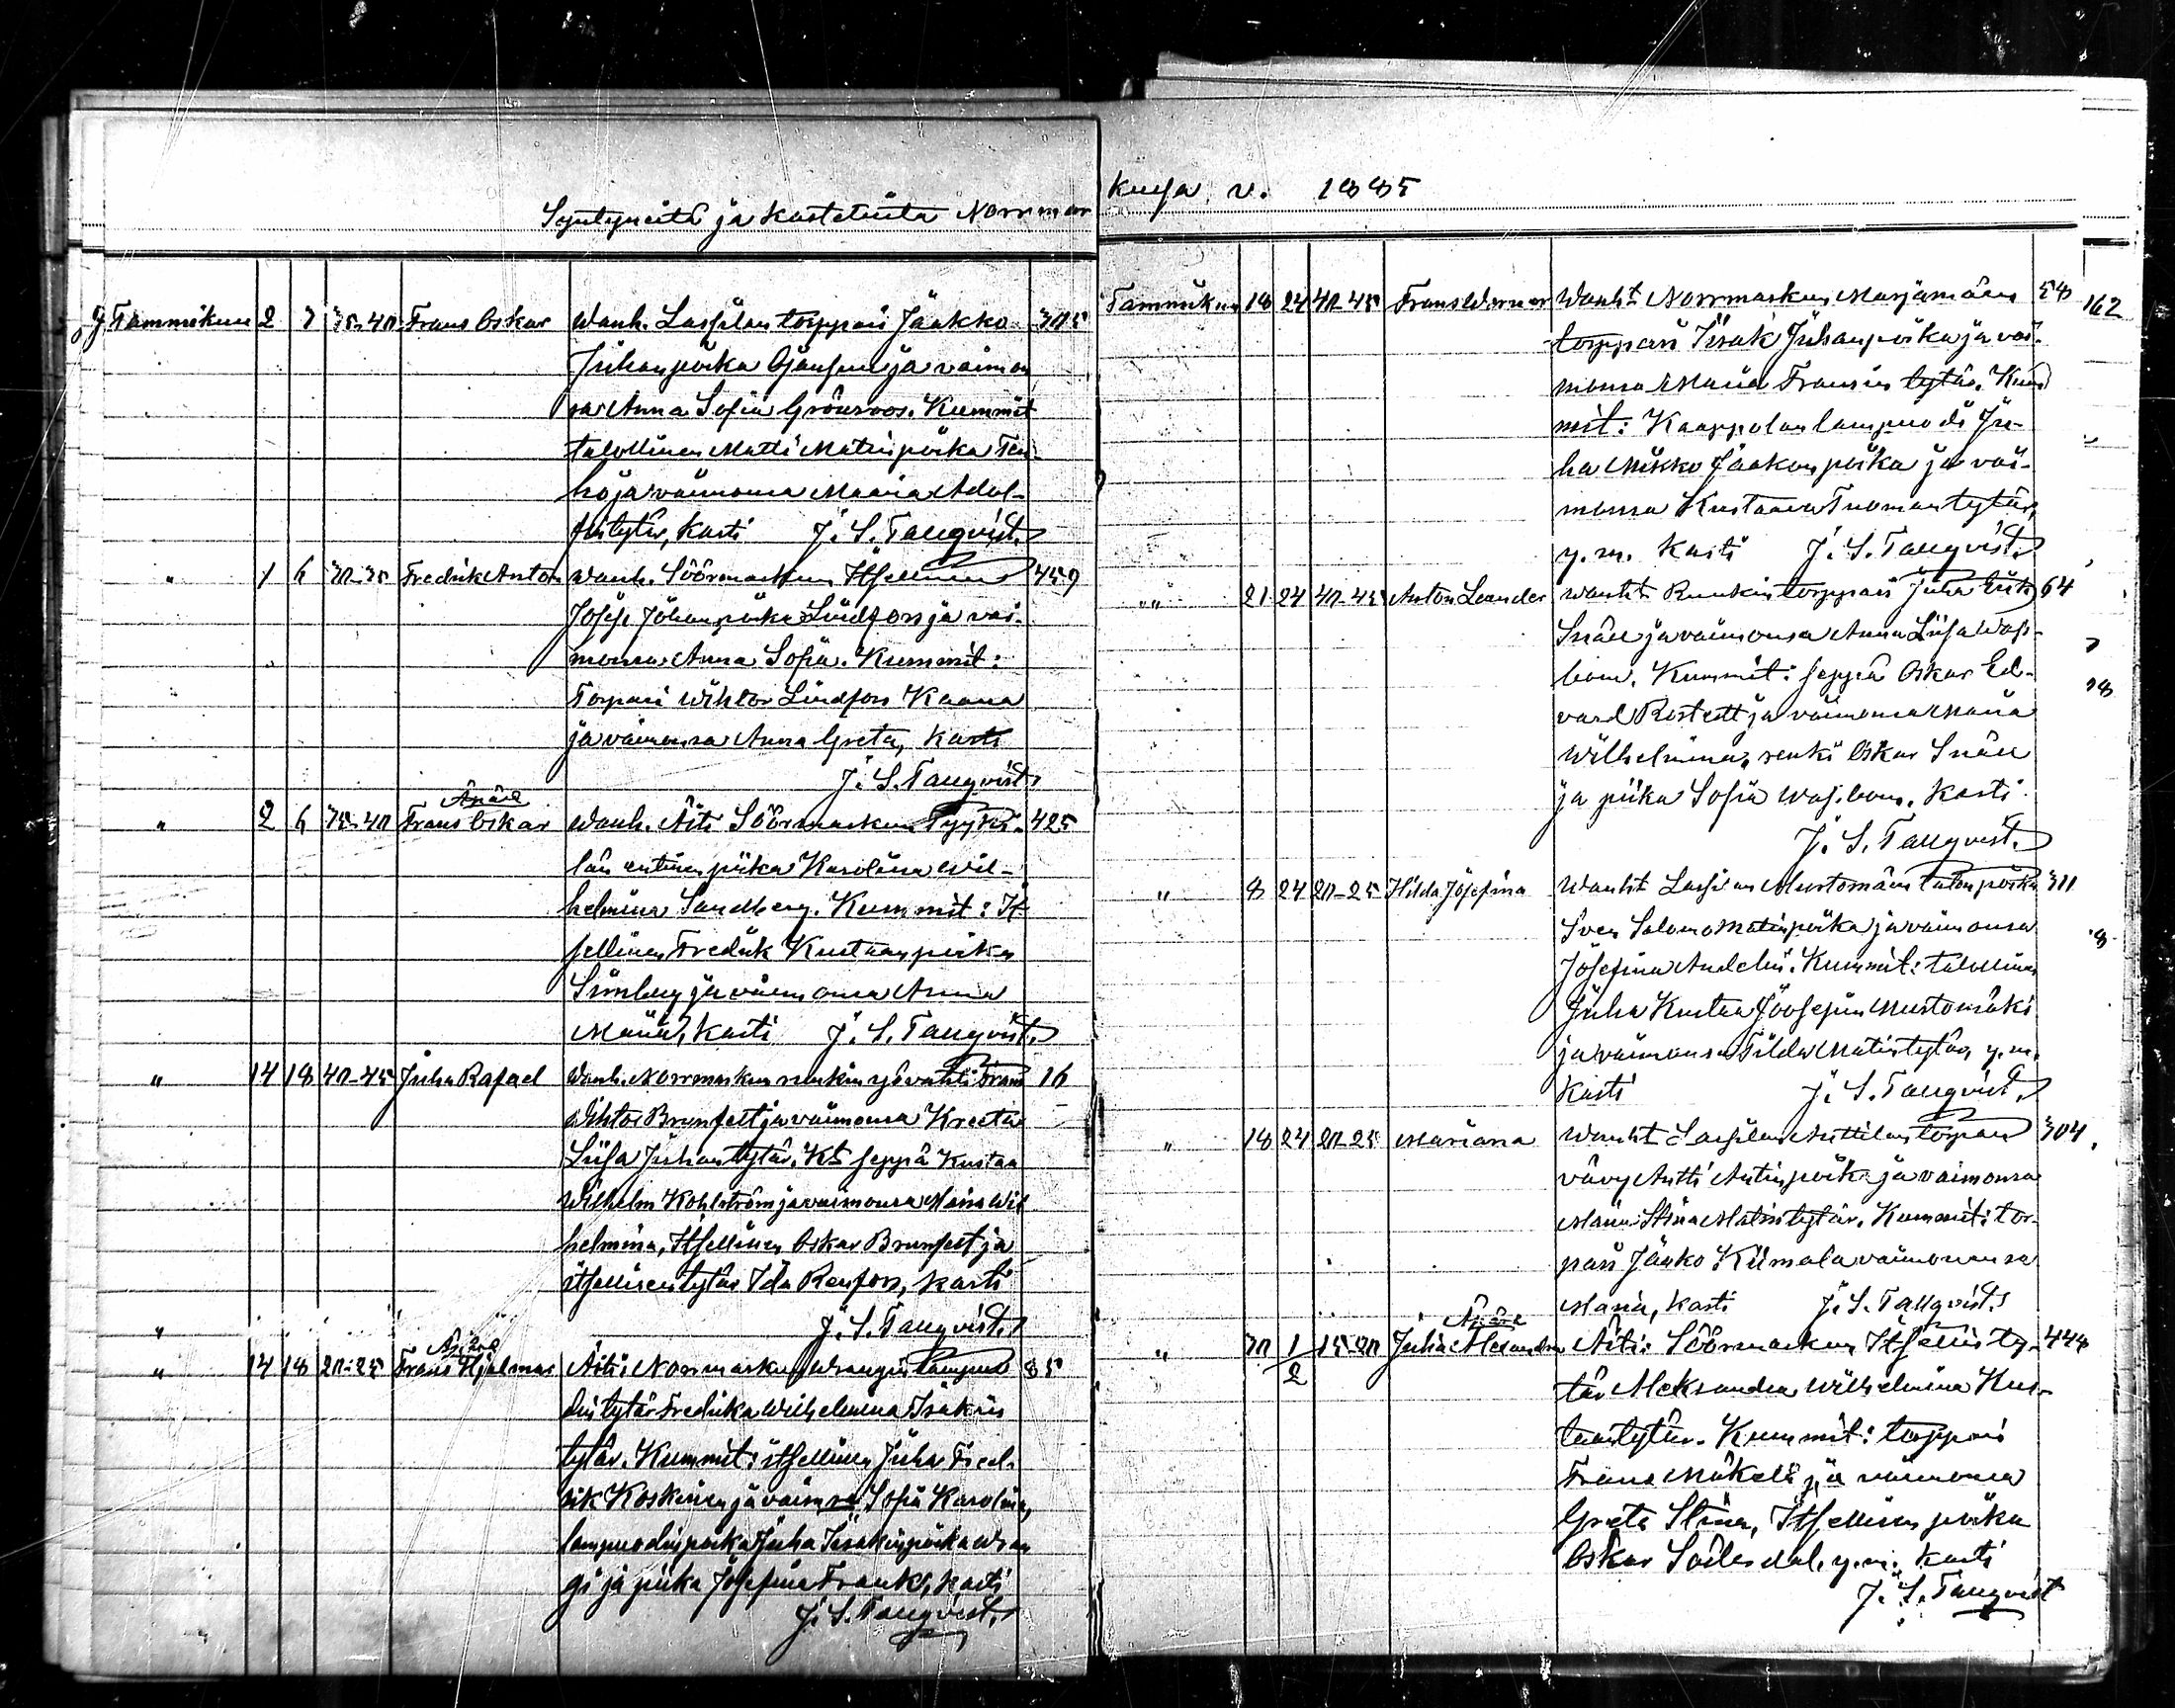 Syntyneitä ja kastetuita Norrmar
kussa v. 1885
Tammikuu 2 7 35-40 Frans Oskar Wanh. Lassilan torppari Jaakko 305
Juhanpoika Ojansuu ja vaimon
sa Anna Sofia Grönroos. Kummit
talollinen Matti Matinpoika
ja vaimonsa Maria Adol-
fintytär, Kasti J. S. Tallqvist.
" 1 6 30-35 Fredrik Anton Wanh. Söörmarkun Itsellinen 459
Josefi Johanpoika Lindfors ja vai-
monsa Anna Sofia. Kummit:
Torpari Wihtor Lindfors Kaana
ja vaimonsa Anna Greta, Kasti
J. S. Tallqvist.
Äpärä
" 2 6 35-40 Frans Oskar Wanh. Äiti Söörmarkun Pyyki- 425
län entinen piika Karolina Wil-
helmina Sandberg. Kummit: It-
sellinen Fredrik Kustaanpoika
Sirnberg ja vaimonsa Anna
Maria, Kasti J. S. Tallqvist.
" 14 18 40-45 Juha Rafael Wanh. Norrmarkun ruukin yövahti Frans 16
Wihtor Brunfelt ja vaimonsa Kreeta
Liisa Juhantytär. K:t seppä Kustaa
Wilhelm Kohlström ja vaimonsa Maria Wil
helmina, Itsellinen Oskar Brunfelt ja
itsellisentytär Ida Renfors, Kasti
J. S. Tallqvist.
Äpärä
" 14 18 20-25 Frans Hjalmar Äiti: Norrmarkun Wrangin lampuo 85
dintytär Fredrika Wilhelmina Isakin
tytär. Kummit: itsellinen Juha Fred-
rik Koskinen ja vaimonsa Sofia Karolina,
lampuodinpoika Juha Iisakinpoika Wran
gi ja piika Josefina Frank, Kasti
J. S. Tallqvist.
Tammikuu 18 24 40-45 Frans Werner Wanh:t Norrmarkun Marjamäen 58
torppari Iisak Juhanpoika ja vai-
monsa Maria Fransin tytär. Kum
mit: Kaappolan lampuodi Ju-
ha Mikko Jaakonpoika ja vai-
monsa Kustaava Tuomantytär,
y.m. Kasti J. S. Tallqvist.
" 21 24 40-45 Anton Leander Wanh:t Ruukin torppari Juha Erik 64
Snäll ja vaimonsa Anna Liisa Wass-
bom. Kummit: seppä Oskar Ed-
vard Rostedt ja vaimonsa Maria
Wilhelmina, renki Oskar Snäll
ja piika Sofia Wassbom. Kasti
J. S. Tallqvist.
" 8 24 20-25 Hilda Josefina Wanh:t Lassilan Mustomäen talonpoika 311
Sven Salomo Matinpoika ja vaimonsa
Josefina Andelin. Kummit: talollinen
Juha Kustaa Joosepin Mustomäki
ja vaimonsa Tilda Matintytär, y.m.
Kasti J. S. Tallqvist.
" 18 24 20-25 Mariana Wanh:t Lassilan Anttilan torpan 304
vävy Antti Antinpoika ja vaimonsa
Maria Stina Matintytär. Kummit: tor-
pari Jaako Kiimala vaimonensa
Maria, Kasti J. S. Tallqvist.
Äpärä
" 30 1/2 15-20 Juha Alexander Äiti: Söörmarkun Itsellis ty- 448
tär Aleksandra Wilhelmina Kus-
taantytär. Kummit: torppari
Frans Mäkelä ja vaimonsa
Greta Stina, Itsellisen poika
Oskar Söderdal, y.m. Kasti
J. S. Tallqvist
162